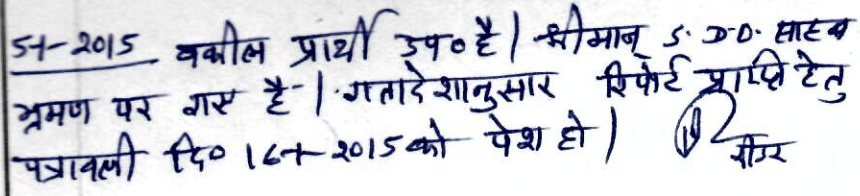 5-1-2015 वकील प्रार्थी उप० है। श्रीमान् S.D.O. साहब
भ्रमण पर गए है। गतादेशानुसार रिपोर्ट प्राप्ति हेतु
पत्रावली दि० 16-1-2015 को पेश हो। रीडर